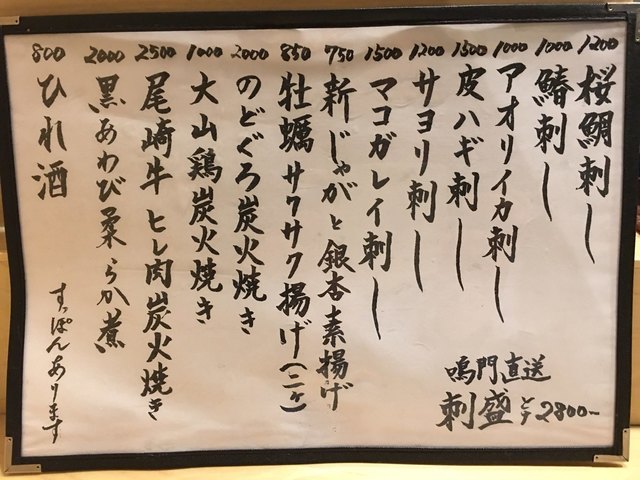 1200 桜鯛刺し
1000 鰆刺し
1000 アオリイカ刺し
1500 皮ハギ刺し
1200 サヨリ刺し
1500 マコガレイ刺し
750 新じゃがと銀杏素揚げ
850 牡蠣サクサク揚げ(二ヶ)
2000 のどぐろ炭火焼き
1000 大山鶏炭火焼き
2500 尾崎牛ヒレ肉炭火焼き
2000 黒あわび柔らか煮
800 ひれ酒
鳴門直送
刺盛 2800~
すっぽんあります